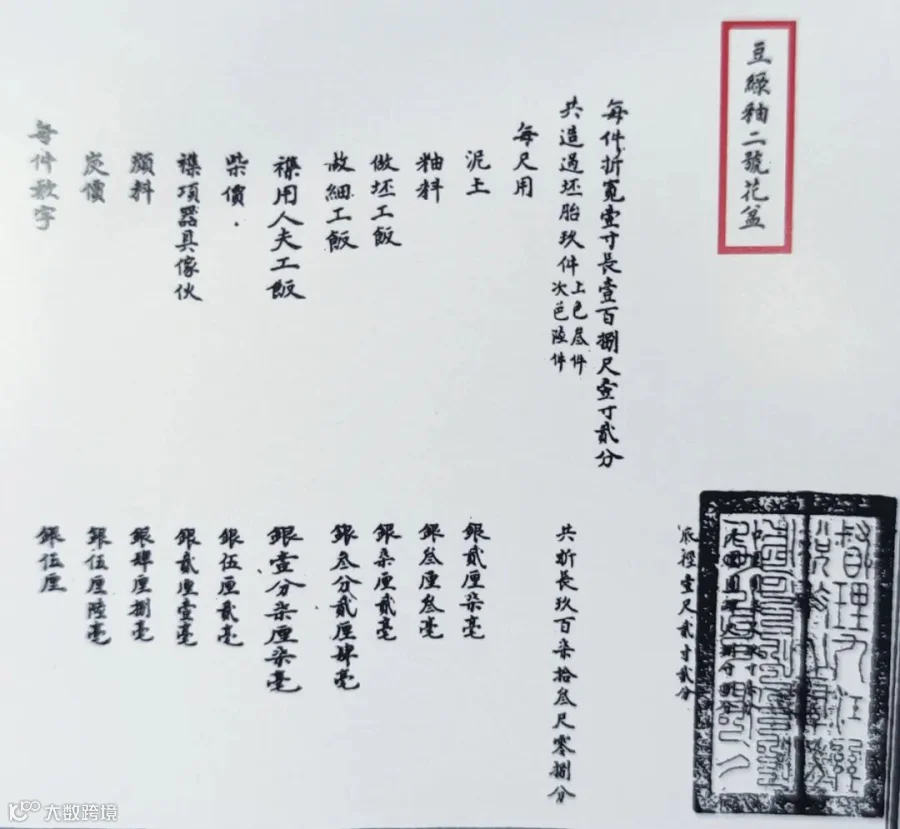 豆綠釉二號花盆
底徑壹尺貳寸貳分
每件折寬壹寸長壹百捌尺壹寸貳分
共造過坯胎玖件上色叁件
次色陸件
共折長玖百柒拾叁尺零捌分
每尺用
泥土 銀貳厘柒毫
釉料 銀叁厘叁毫
做坯工飯 銀柒厘貳毫
做細工飯 銀叁分貳厘肆毫
襍用人夫工飯 銀壹分柒厘柒毫
柴價 銀伍厘貳毫
襍項器具傢伙 銀貳厘壹毫
顏料 銀肆厘捌毫
炭價 銀伍厘陸毫
每件款字 銀伍厘
大数跨境